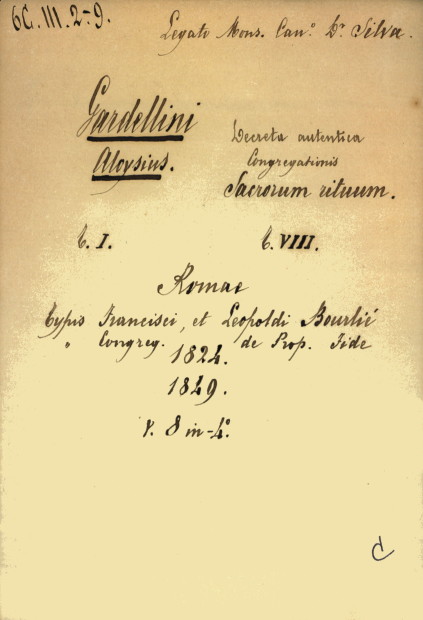 6C. III. 2-9.
Legato Mons. Can.º Dr Silva.
Gardellini
Aloysius.
Decreta autentica
Congregationis
Sacrorum rituum.
t. I. t. VIII.
Romae
Typis Francisci, et Leopoldi Bourlié
" Congreg. de Prop. Fide
1824.
1849.
v. 8 in-4º.
C